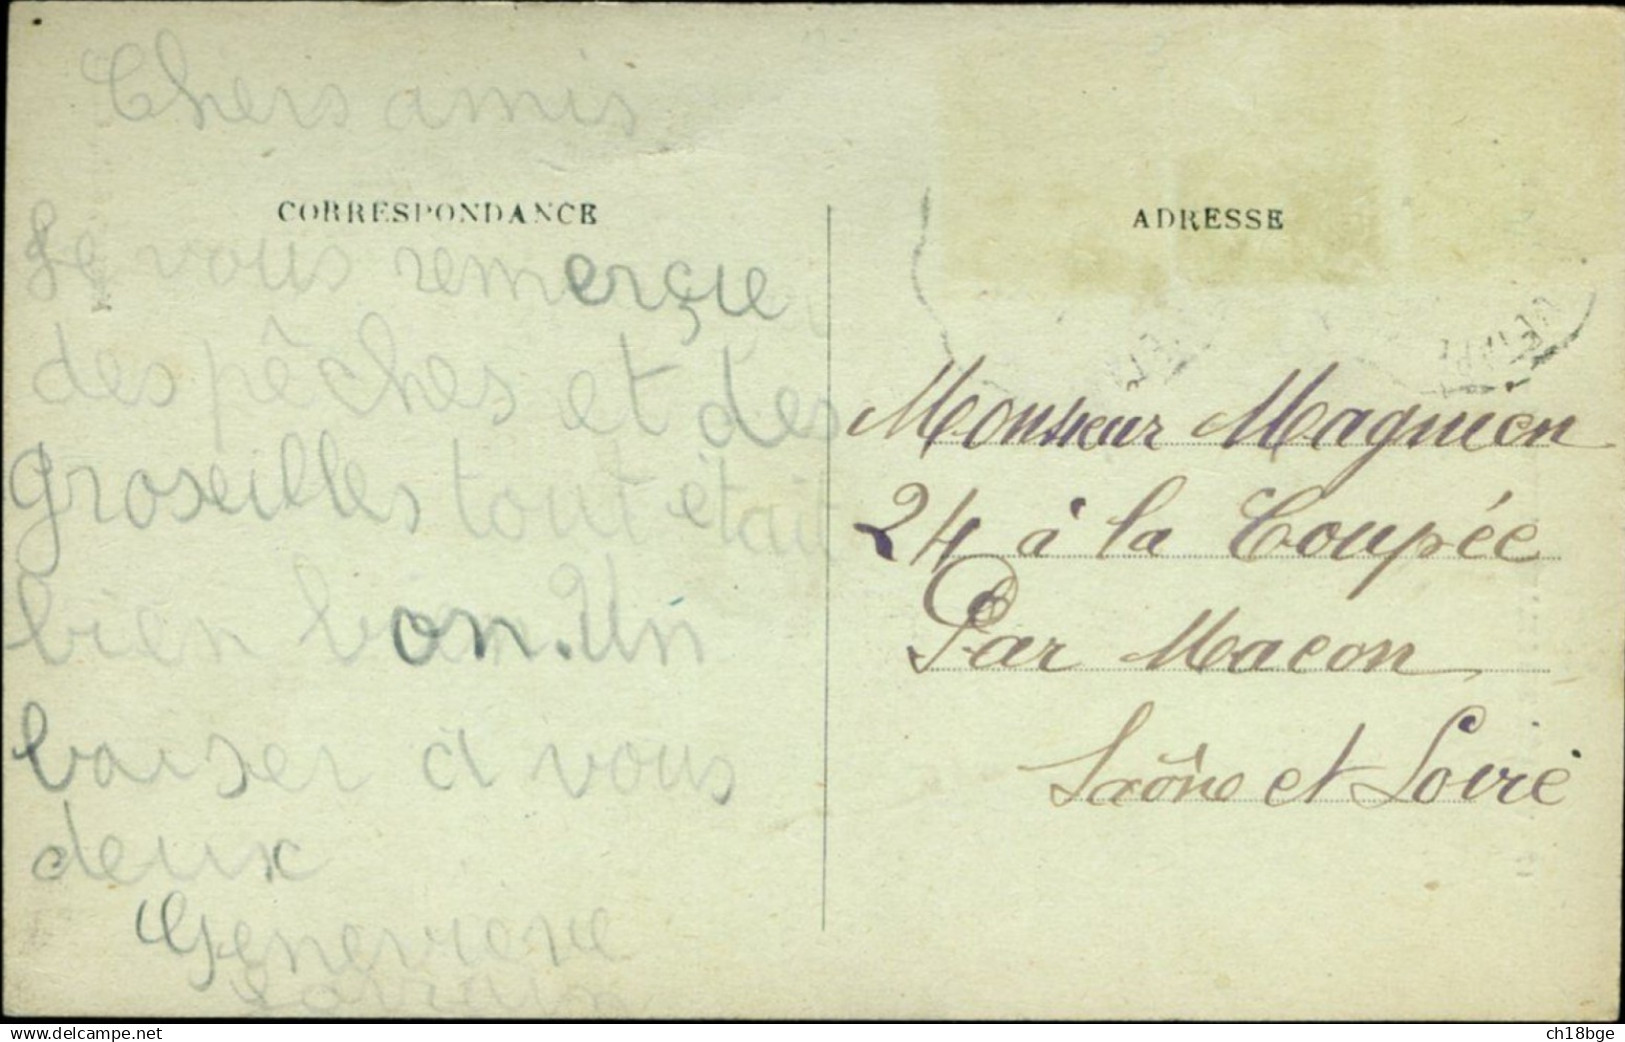 Chers amis
CORRESPONDANCE
Je vous remerçie
des pêches et des
groseilles tout était
bien bon. Un
baiser à vous
deux
Genevieve
ADRESSE
Monsieur Magnien
24 à la Coupée
Par Macon
Saône et Loire
www.delcampe.net
ch18bge